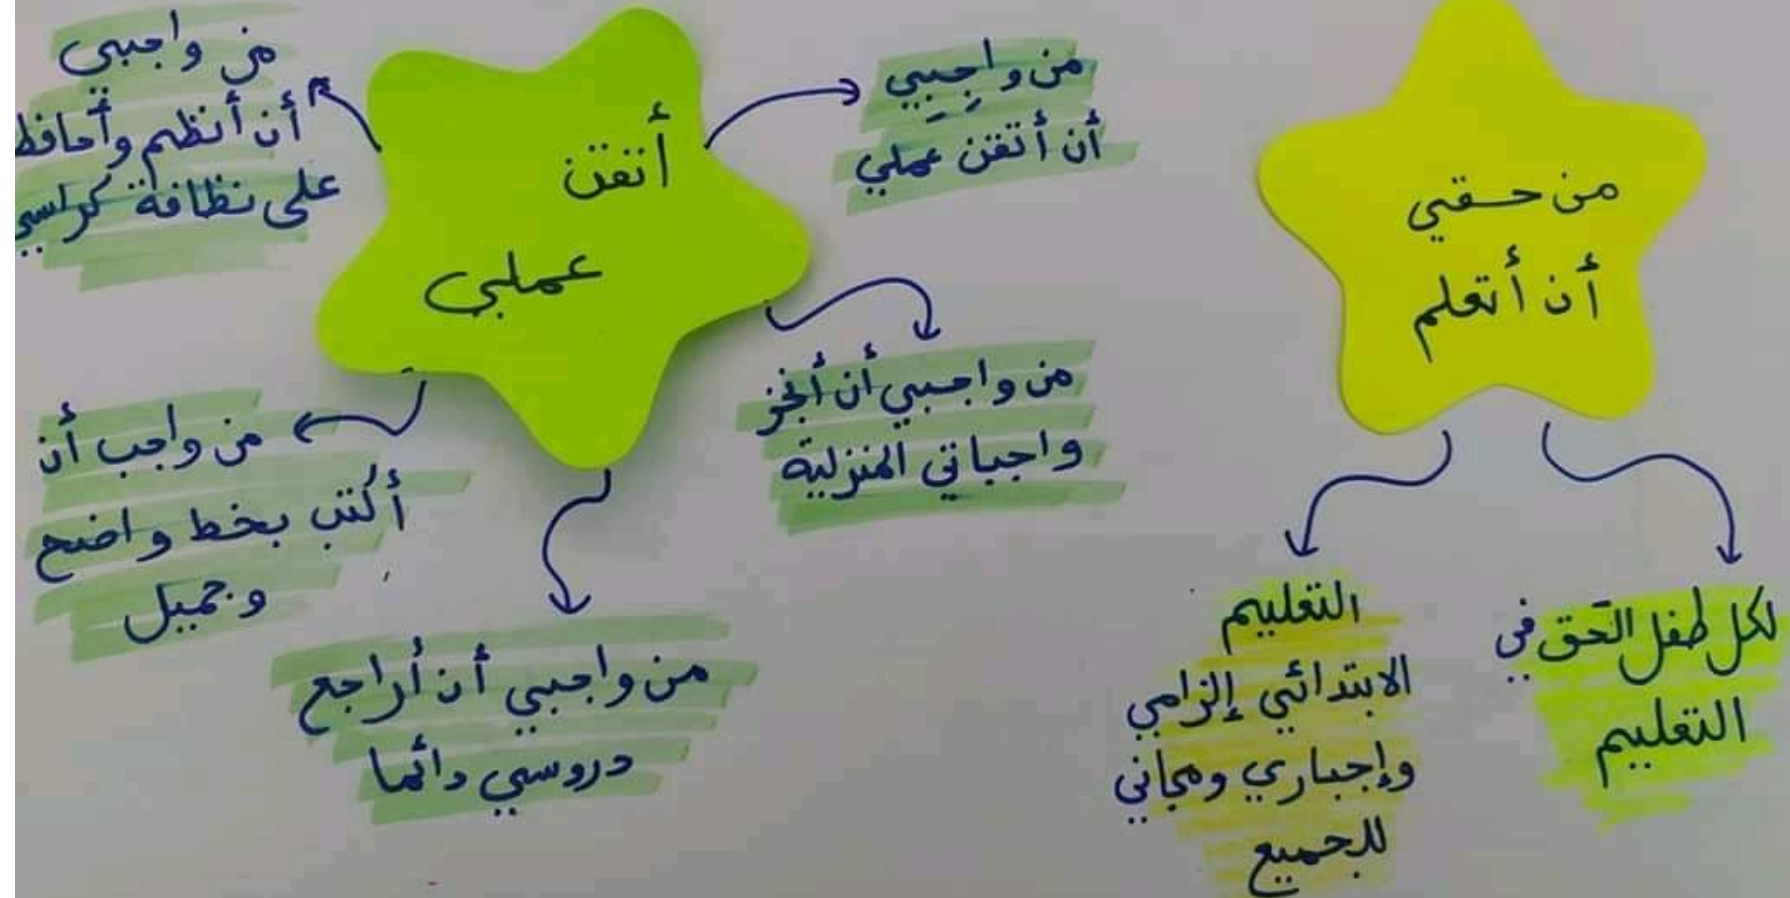 من حقي
أن أتعلم
لكل طفل الحق في
التعليم
التعليم
الابتدائي إلزامي
وإجباري ومجاني
للجميع
أتقن
عملي
من واجِبِي
أن أتقن عملي
من واجبي أن أنجز
واجباتي المنزلية
من واجبي أن أراجع
دروسي دائما
من واجب أن
أكتب بخط واضح
وجميل
من واجبي
أن أنظم وأحافظ
على نظافة كراسي